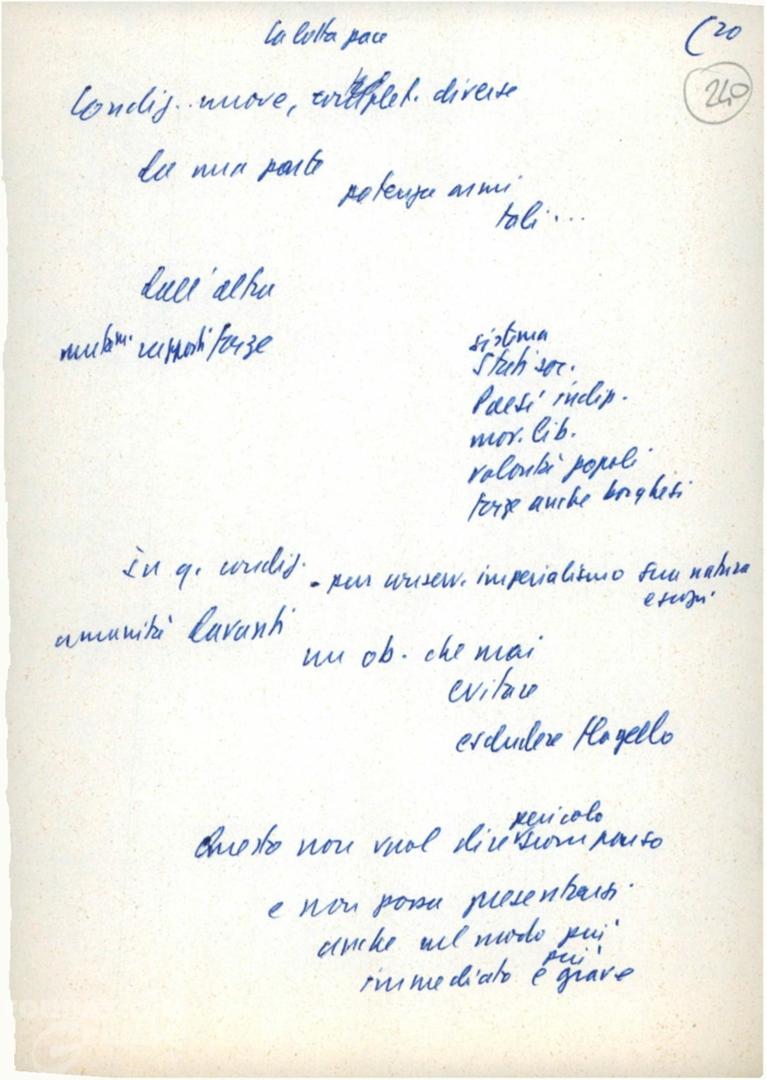 La lotta pace
(20
240
Condiz. nuove, complet. diverse
da una parte
potenza armi
tali...
dall'altra
mutam. rapporti forze
sistema
Stati soc.
Paesi indip.
mov. lib.
volontà popoli
forze anche borghesi
in q. condiz. - pur conserv. imperialismo sua natura
e scopi
umanità davanti
un ob. che mai
evitare
escludere flagello
pericolo
Questo non vuol dire scomparso
e non possa presentarsi
anche nel modo più
più
immediato e grave